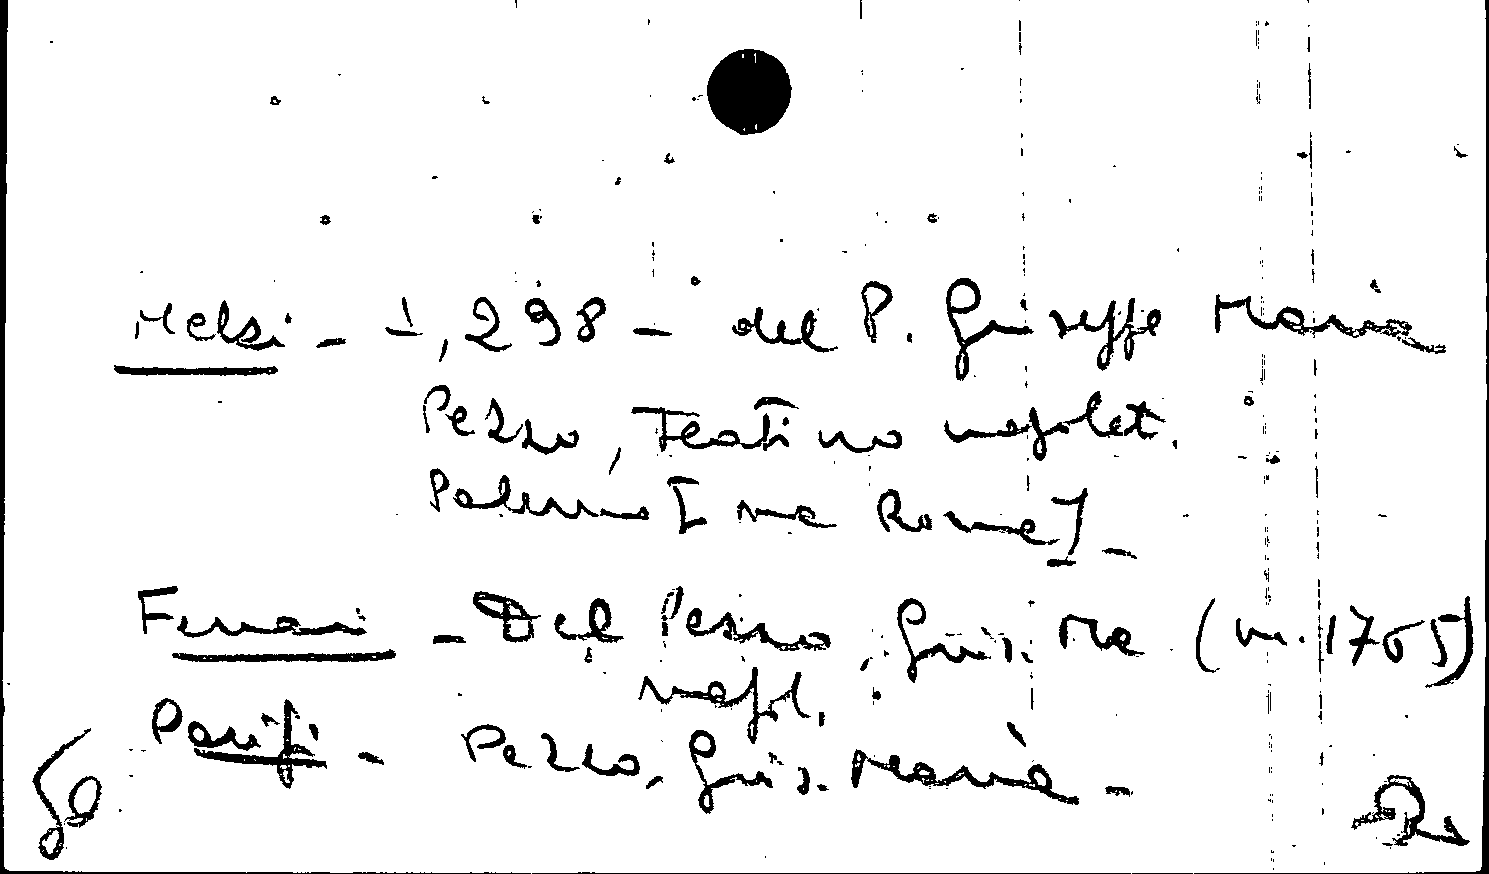 Melzi - I, 298 - del P. Giuseppe Maria
Pezzo, Teatino napolet.
Palermo [ma Roma] -
Ferrari - Del Pezzo, Gius. Ma (m. 1765)
napol.
Parisi - Pezzo, Gius. Maria -